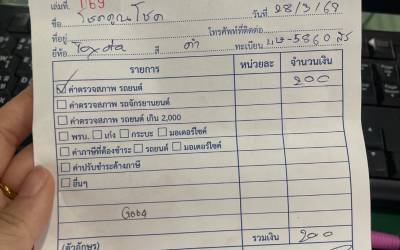 เล่มที่ 1169
ชื่อ โชคคุณโชค วันที่ 28/3/69
ที่อยู่ โทรศัพท์ที่ติดต่อ
ยี่ห้อ Toyota สี ดำ ทะเบียน -5860
รายการ หน่วยละ จำนวนเงิน
ค่าตรวจสภาพ รถยนต์ 200
ค่าตรวจสภาพ รถจักรยานยนต์
ค่าตรวจสภาพ รถยนต์ เกิน 2,000
พรบ. เก๋ง กระบะ มอเตอร์ไซค์
ค่าภาษีที่ต้องชำระ รถยนต์ มอเตอร์ไซค์
ค่าปรับชำระล้างภาษี
อื่นๆ
รวมเงิน 200
(ตัวอักษร)